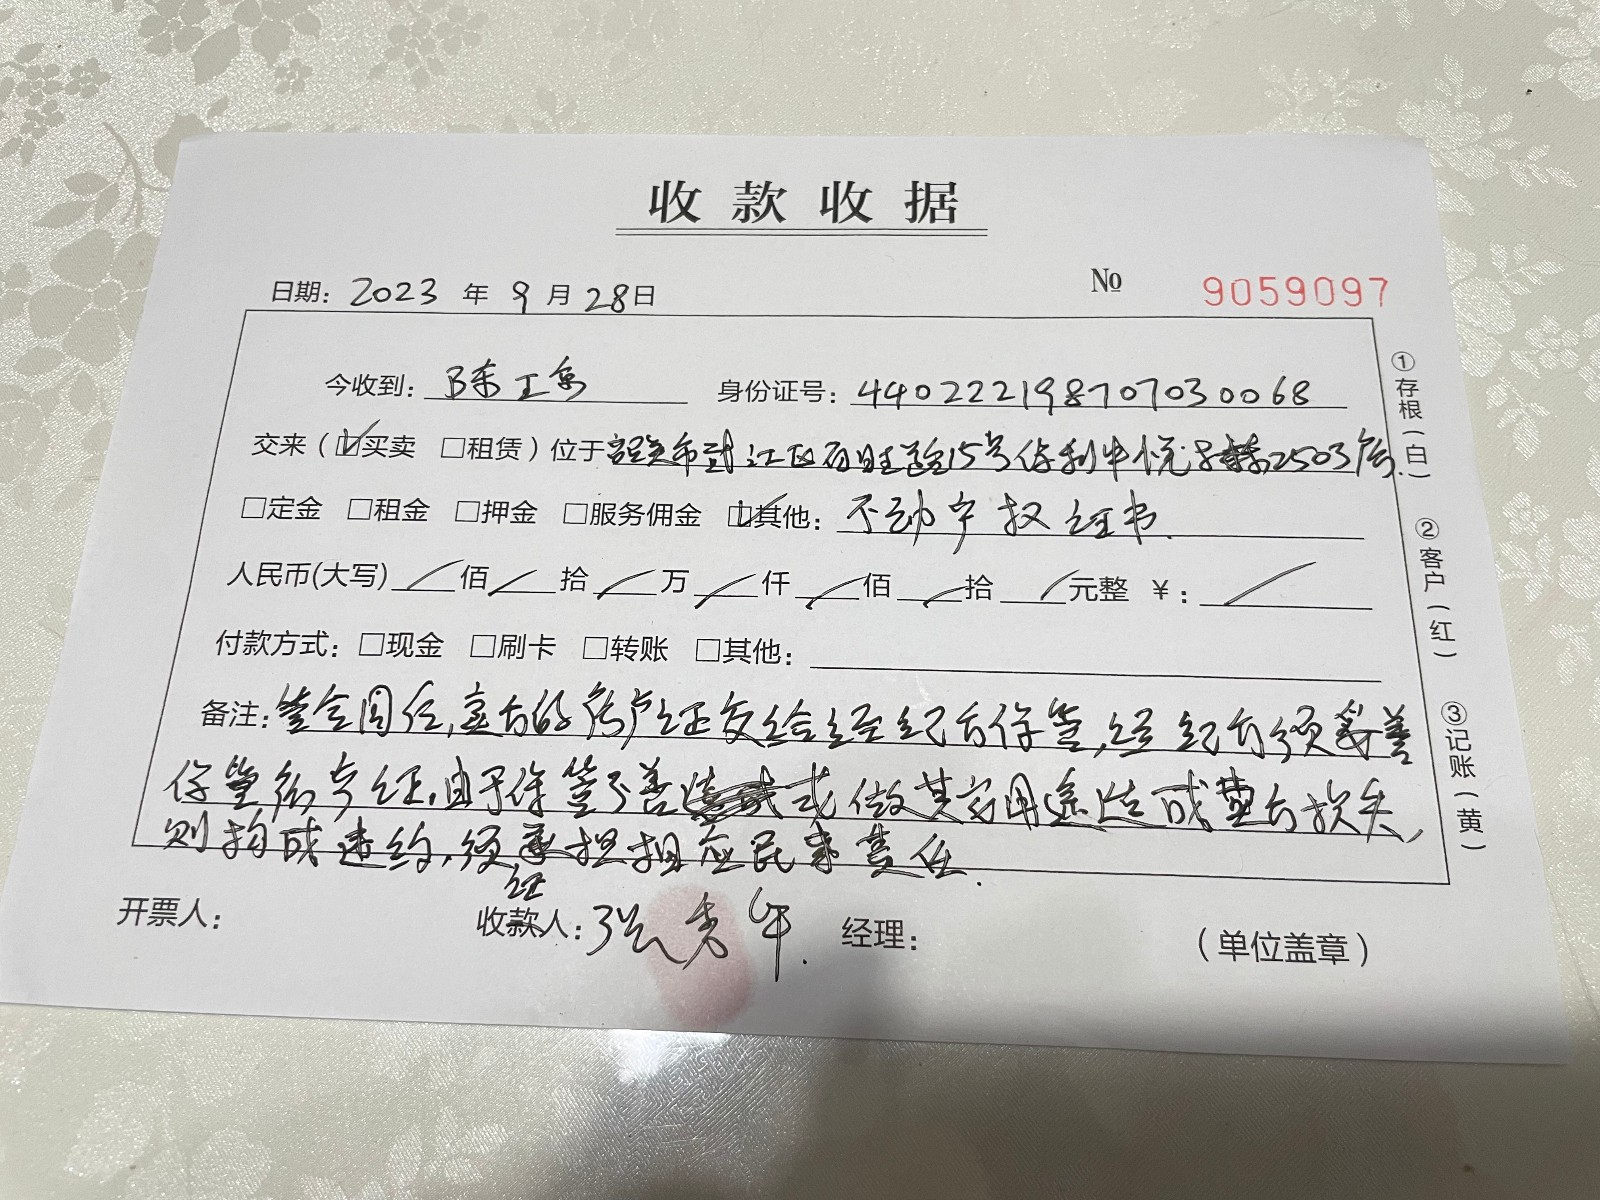 收款收据
日期: 2023 年 9 月 28 日 № 9059097
今收到: 陈工 身份证号: 440222198707030068
交来(☑买卖 □租赁)位于韶关市武江区百旺路15号保利中悦 2503房.
□定金 □租金 □押金 □服务佣金 ☑其他: 不动产权证书.
人民币(大写) / 佰 / 拾 / 万 / 仟 / 佰 / 拾 / 元整 ¥: /
付款方式: □现金 □刷卡 □转账 □其他:
备注: 签合同后,卖方的房产证交给经纪方保管,经纪方须妥善
保管房产证,由于保管不善 或做其它用途造成卖方损失,
则构成违约,须承担相应民事责任.
证
开票人: 收款人: 张秀午. 经理: (单位盖章)
①存根(白)
②客户(红)
③记账(黄)